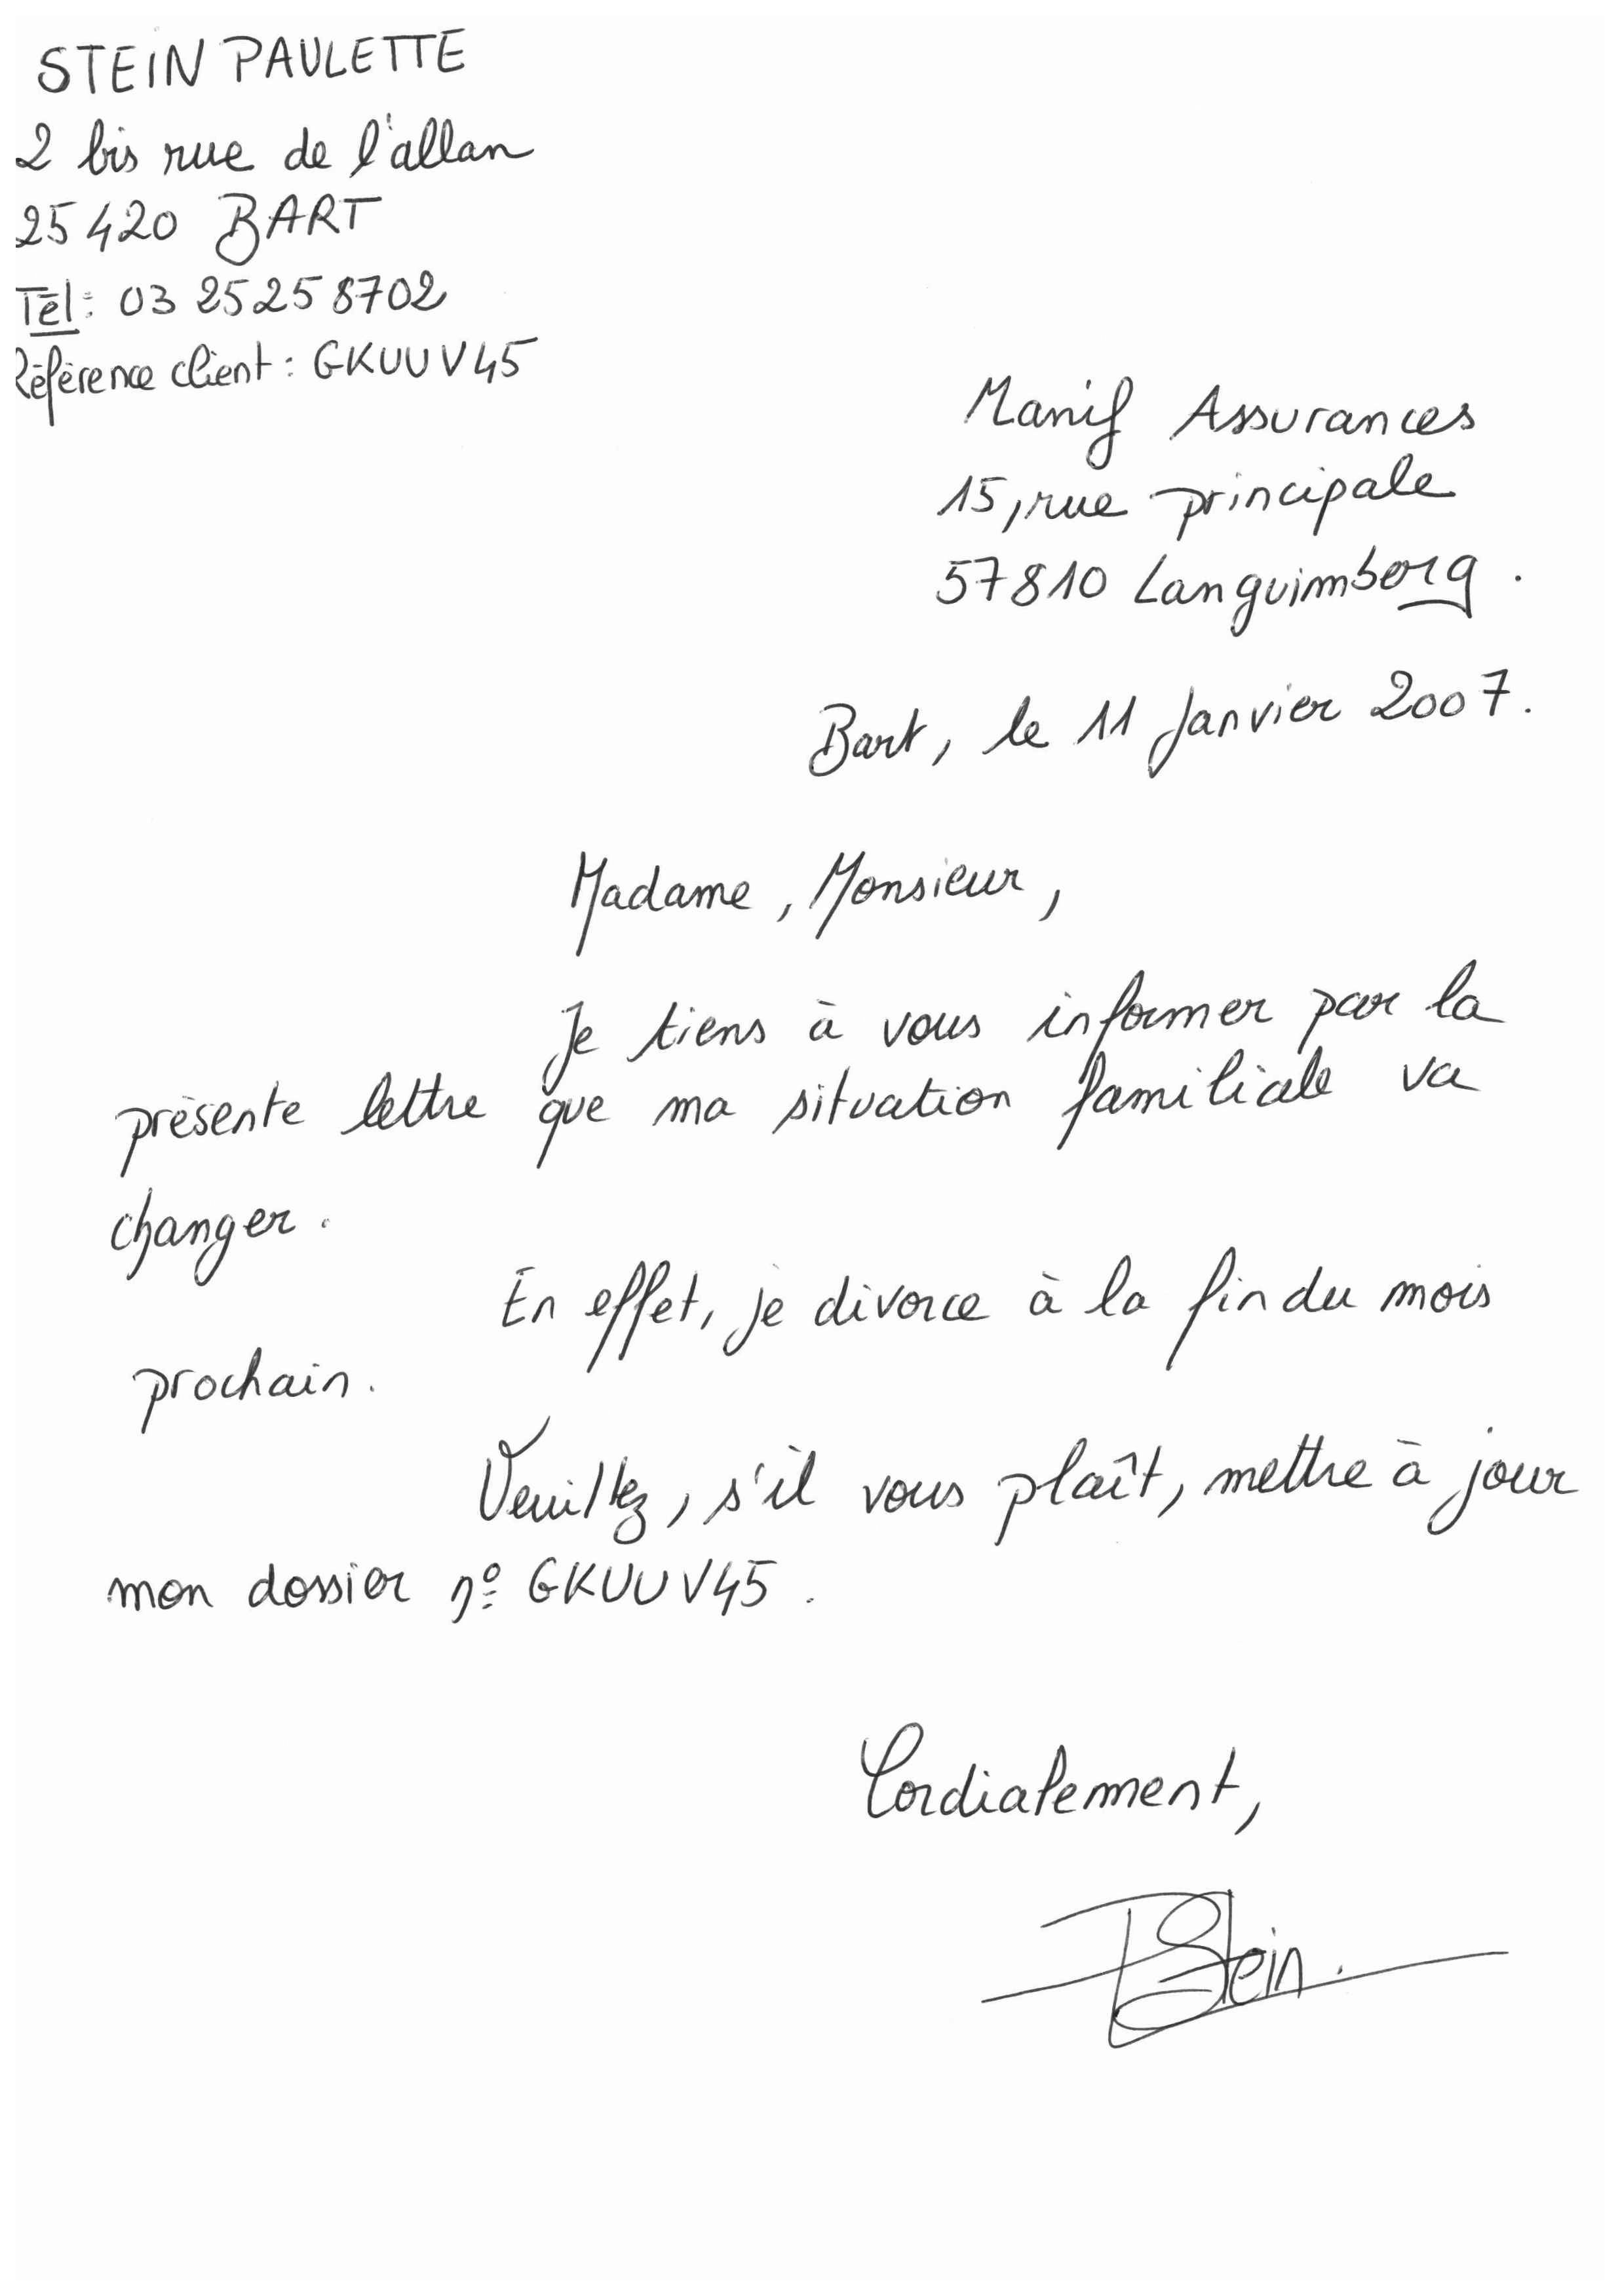 STEIN PAULETTE
2 bis rue de l'allan
25420 BART
Tél: 03 25258702
Référence client : GKUUV45
Manif Assurances
15, rue principale
57810 Languimberg.
Bart, le 11 Janvier 2007.
Madame, Monsieur,
Je tiens à vous informer par la
présente lettre que ma situation familiale va
changer.
En effet, je divorce à la fin du mois
prochain.
Veuillez, s'il vous plaît, mettre à jour
mon dossier n° GKUUV45.
Cordialement,
PStein.